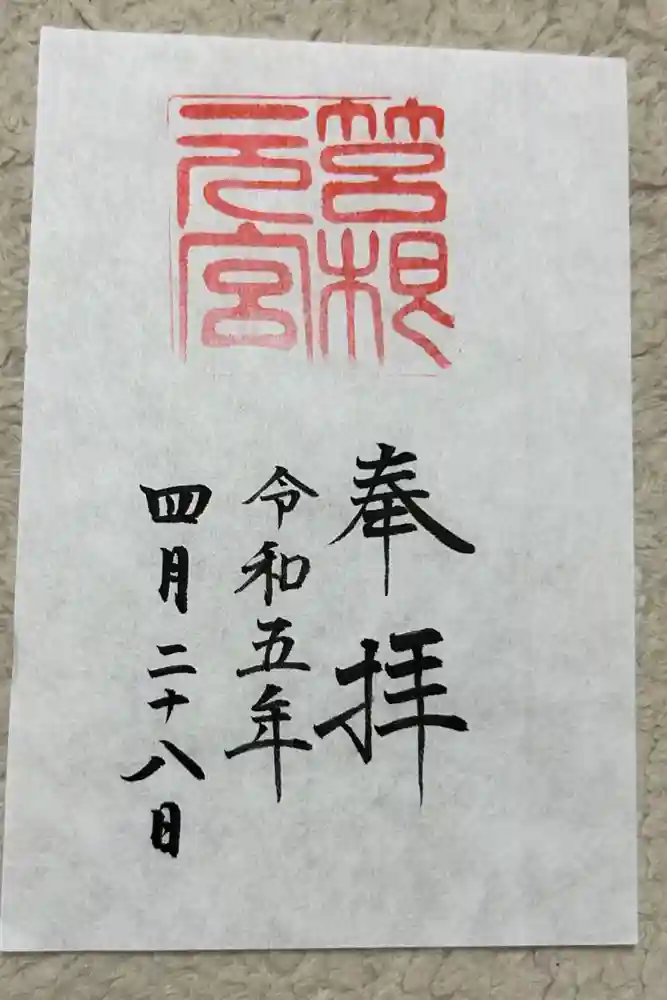 筥根
元宮
奉拝
令和五年
四月二十八日